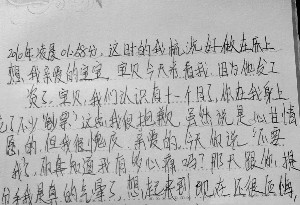 2010年凌晨01:58分，这时的我梳洗好做在床上
想我亲爱的宝宝，宝贝今天来看我，因为他发工
资了。宝贝，我们认识有十一个月了，你在我身上
花了不少"的事"这点我很抱歉，虽然说是心甘情
愿的但我很愧疚，亲爱的，今天你说"不要
我"，你真知道我有多心痛吗？那天跟你提
分手我是真的气晕了，想起来到现在还很后悔，